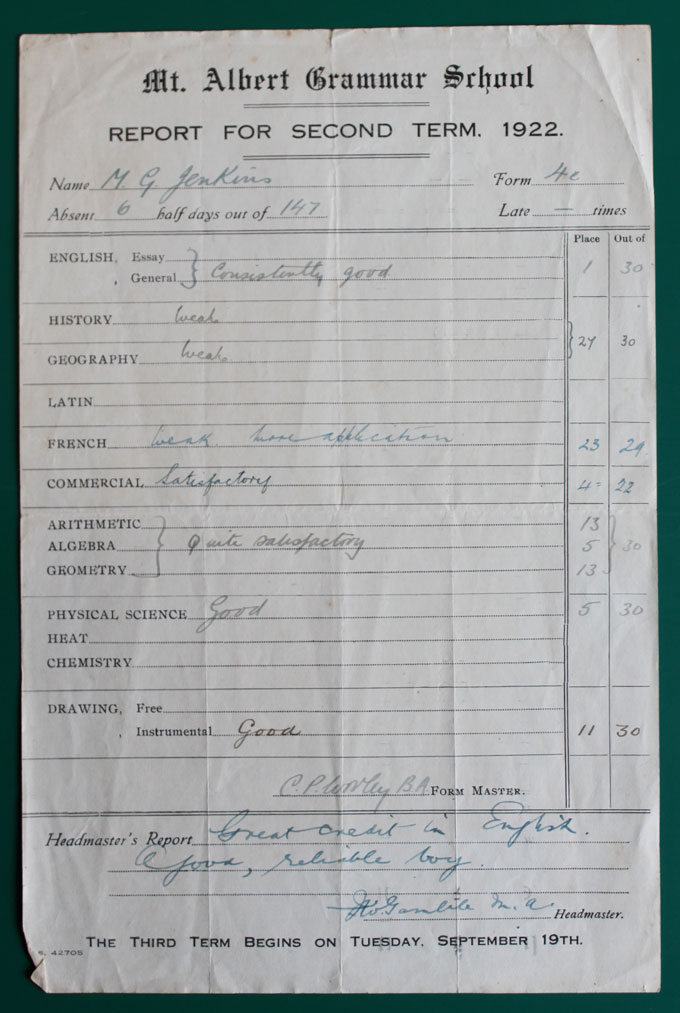 Mt. Albert Grammar School
REPORT FOR SECOND TERM. 1922.
Name M. G. Jenkins Form 4c
Absent 6 half days out of 147 Late — times
Place Out of
ENGLISH, Essay
, General } Consistently good 1 30
HISTORY Weak
GEOGRAPHY Weak } 27 30
LATIN
FRENCH Weak. More application 23 29
COMMERCIAL Satisfactory 4= 22
ARITHMETIC 13
ALGEBRA } Quite satisfactory 5 } 30
GEOMETRY 13
PHYSICAL SCIENCE Good 5 30
HEAT
CHEMISTRY
DRAWING, Free
, Instrumental Good 11 30
C. P. Worley B.A. FORM MASTER.
Headmaster's Report Great credit in English.
A good, reliable boy.
Gamble M.A. Headmaster.
THE THIRD TERM BEGINS ON TUESDAY, SEPTEMBER 19TH.
42705